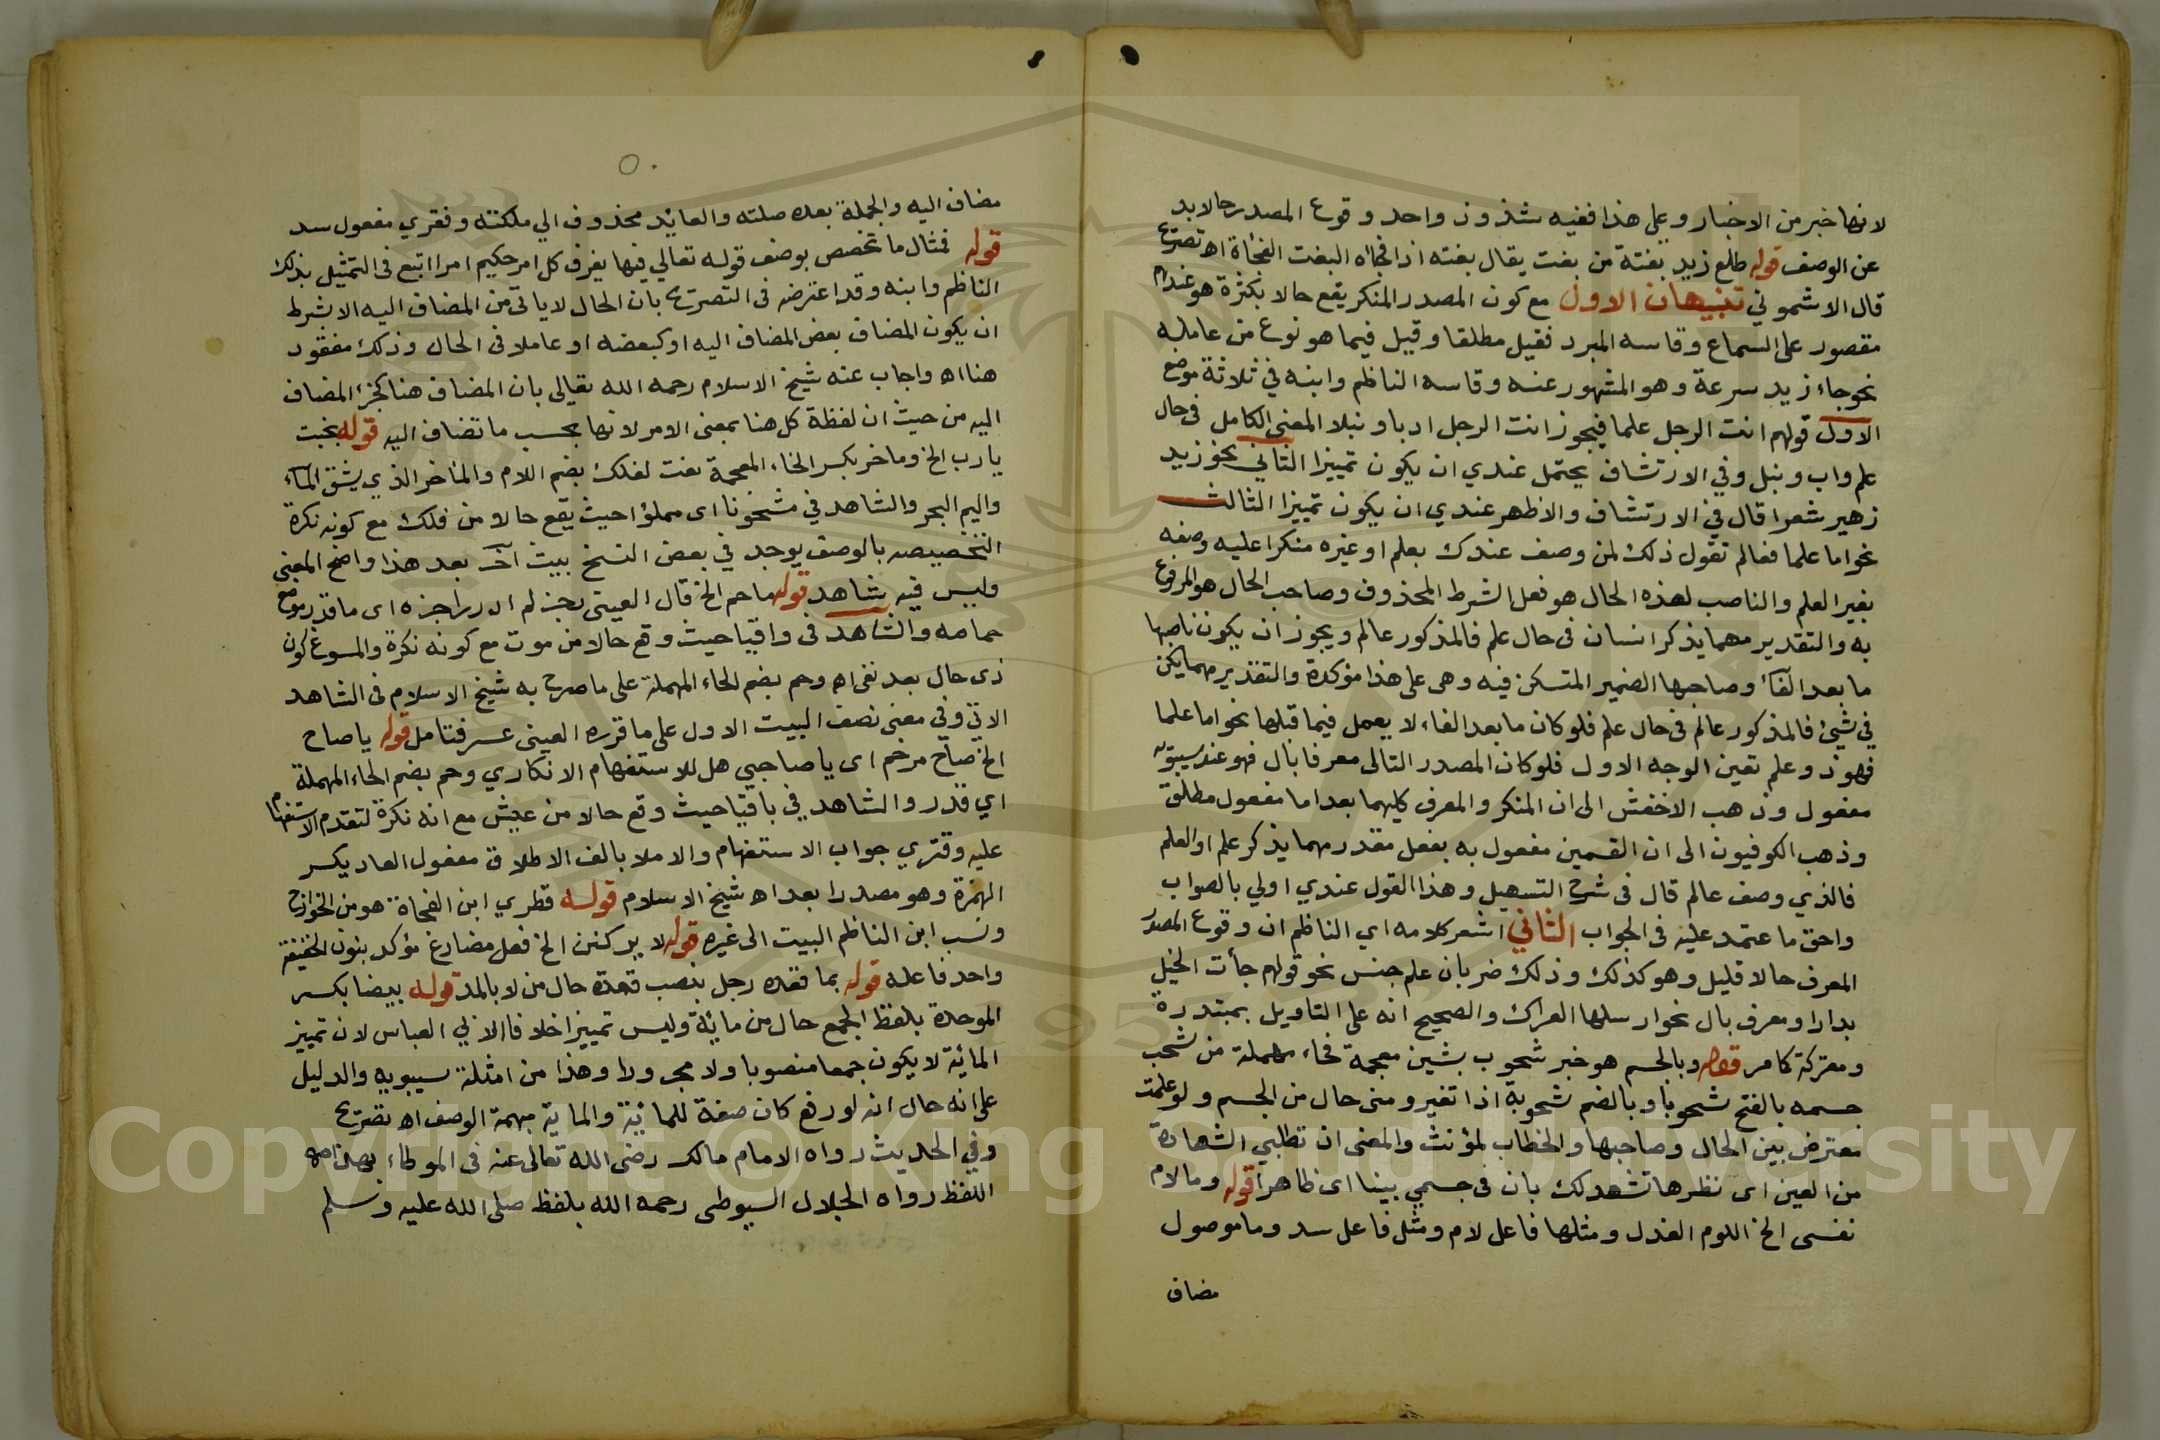 لانها خبر من الاخبار وعلى هذا ففيه شذوذ واحد وقوع المصدر حالا بد
عن الوصف قوله طلع زيد بغتة من بغت يقال بغته اذا فجاه البغت الفجأة اه تصريح
قال الاشموني تنبيهان الاول مع كون المصدر المنكر يقع حالا بكثرة هو عندهم
مقصور على السماع وقاسه المبرد فقيل مطلقا وقيل فيما هو نوع من عامله
نحو جاء زيد سرعة وهو المشهور عنه وقاسه الناظم وابنه في ثلاثة مواضع
الاول قولهم انت الرجل علما فيجوز انت الرجل ادبا ونبلا المعنى الكامل في حال
علم واب ونبل وفي الارتشاف يحتمل عندي ان يكون تمييزا الثاني نحو زيد
زهير شعرا قال في الارتشاف والاظهر عندي ان يكون تمييزا الثالث
نحو اما علما فعالم تقول ذلك لمن وصف عندك بعلم او غيره منكرا عليه وصفه
بغير العلم والناصب لهذه الحال هو فعل الشرط المحذوف وصاحب الحال هو المرفوع
به والتقدير مهما يذكر انسان في حال علم فالمذكور عالم ويجوز ان يكون ناصبها
ما بعد الفاء وصاحبها الضمير المتسكن فيه وهي على هذا مؤكدة والتقدير مهما يكن
في شيئ فالمذكور عالم في حال علم فلو كان ما بعد الفاء لا يعمل فيما قبلها نحو اما علما
فهو ذو علم تعين الوجه الاول فلو كان المصدر التالى معرفا بال فهو عند سيبويه
مفعول وذهب الاخفش الى ان المنكر والمعرف كليهما بعد اما مفعول مطلق
وذهب الكوفيون الى ان القسمين مفعول به بفعل مقدر مهما يذكر علم او العلم
فالذي وصف عالم قال في شرح التسهيل وهذا القول عندي اولي بالصواب
واحق ما عتمد عليه في الجواب الثاني اشعر كلامه اي الناظم ان وقوع المصدر
المعرف حالا قليل وهو كذلك وذلك ضربان علم جنس نحو قولهم جأت الخيل
بدادا ومعرف بال نحو ارسلها العراك والصحيح انه على التاويل بمبتدرة
ومعتركة كا مر قوله وبالجسم هو خبر شحوب بشين معجمة فحاء مهملة من شحب
جسمه بالفتح شحوبا وبالضم شحوبة اذا تغير ومنى حال من الجسم ولو علمت
معترض بين الحال وصاحبها والخطاب لمؤنث والمعنى ان تطلبي الشهادة
من العين اى نظرها تشهد لك بان في جسمي بينا اى ظاهرا قوله وما لام
نفسى الخ اللوم العذل ومثلها فاعل لام ومثل فاعل سد وما موصول
مضاف
مضاف اليه والجملة بعده صلته والعائد محذوف الي ملكته وفقري مفعول سد
قوله فمثال ما تخصص بوصف قوله تعالي فيها يفرق كل امر حكيم امرا اتبع في التمثيل بذلك
الناظم وابنه وقد اعترضه في التصريح بان الحال لا ياتى من المضاف اليه الا بشرط
ان يكون المضاف بعض المضاف اليه او كبعضه او عاملا في الحال وذلك مفقود
هنا اه واجاب عنه شيخ الاسلام رحمه الله تعالى بان المضاف هنا كجزء المضاف
اليه من حيث ان لفظة كل هنا بمعنى الامر لانها بحسب ما تضاف اليه قوله نجيت
يا رب الخ وماخر بكسر الخاء المعجمة نعت لفلك بضم اللام والماخر الذي يشق الماء
واليم البحر والشاهد في مشحونا اى مملؤا حيث يقع حالا من فلك مع كونه نكرة
التخصيصه بالوصف يوجد في بعض النسخ بيت آخر بعد هذا واضح المعنى
وليس فيه شاهد قوله ما حم الخ قال العينى بجز لم ادر اجزه اى ما قدر موضع
حماصه والشاهد في واقيا حيث وقع حالا من موت مع كونه نكرة والمسوغ كون
ذى حال بعد نفى اه وحم بضم الحاء المهملة على ما صرح به شيخ الاسلام في الشاهد
الاتي وفي معنى نصف البيت الاول على ما قرره العينى عسر فتامل قوله يا صاح
الخ صاح مرخم اى يا صاحبي هل للاستفهام الانكاري وحم بضم الحاء المهملة
اي قدر والشاهد في باقيا حيث وقع حالا من عيش مع انه نكرة لتقدم الاستفهام
عليه وقتري جواب الاستفهام والاملا بالف الاطلاق مفعول العاد بكسر
الهمزة وهو مصدر ابعد اه شيخ الاسلام قوله قطري ابن الفجاة هو من الخوارج
ونسب ابن الناظم البيت الى غيره قوله لا يركنن الخ فعل مضارع مؤكد بنون الخفيفة
واحد فاعله قوله بما قعده رجل بنصب قعدة حال من لا بالمد قوله بيضا بكسر
الموحدة بلفظ الجمع حال من مائة وليس تمييزا خلافا لابي العباس لان تمييز
المائة لا يكون جمعا منصوبا ولا مجرورا وهذا من امثلة سيبويه والدليل
على انه حال انه لو رفع كان صفة للمائة والماية مبهمة الوصف اه تصريح
وفي الحديث رواه الامام مالك رضى الله تعالى عنه في الموطاء بهذا
اللفظ رواه الجلال السيوطى رحمه الله بلفظ صلى الله عليه وسلم
Copyright © King Saud University
1957